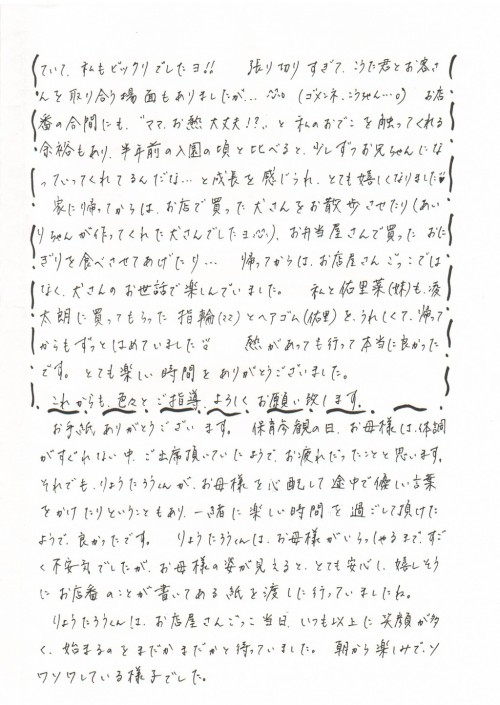 ていて、私もビックリでしたヨ!! 張り切りすぎて、こうた君とお客さ
んを取り合う場面もありましたが… (ゴメンネ、こうちゃん…。) お店
番の合間にも、"ママ、お熱大丈夫!?" と私のおでこを触ってくれる
余裕もあり、半年前の入園の頃と比べると、少しずつお兄ちゃんにな
っていってくれてるんだな…と成長を感じられ、とても嬉しくなりました♥
家に帰ってからは、お店で買った犬さんをお散歩させたり(あい
りちゃんが作ってくれた犬さんでしたヨ)、お弁当屋さんで買ったおに
ぎりを食べさせてあげたり… 帰ってからは、お店屋さんごっこでは
なく、犬さんのお世話で楽しんでいました。 私と佑里菜(妹)も、凌
太朗に買ってもらった指輪(ママ)とヘアゴム(佑里)を、うれしくて、帰って
からもずっとはめていました 熱があっても行って本当に良かった
です。とても楽しい時間をありがとうございました。
これからも、色々とご指導、よろしくお願い致します。
お手紙ありがとうございます。 保育参観の日、お母様は、体調
がすぐれない中、ご出席頂いていたようで、お疲れだったことと思います。
それでも、りょうたろうくんが、お母様を心配して途中で優しい言葉
をかけたりということもあり、一緒に楽しい時間を過ごして頂けた
ようで、良かったです。 りょうたろうくんは、お母様がいらっしゃるまで、すご
く不安気でしたが、お母様の姿が見えると、とても安心し、嬉しそう
にお店番のことが書いてある紙を渡しに行っていましたね。
りょうたろうくんは、お店屋さんごっこ当日、いつも以上に笑顔が多
く、始まるのをまだかまだかと待っていました。 朝から楽しみで、ソ
ワソワしている様子でした。